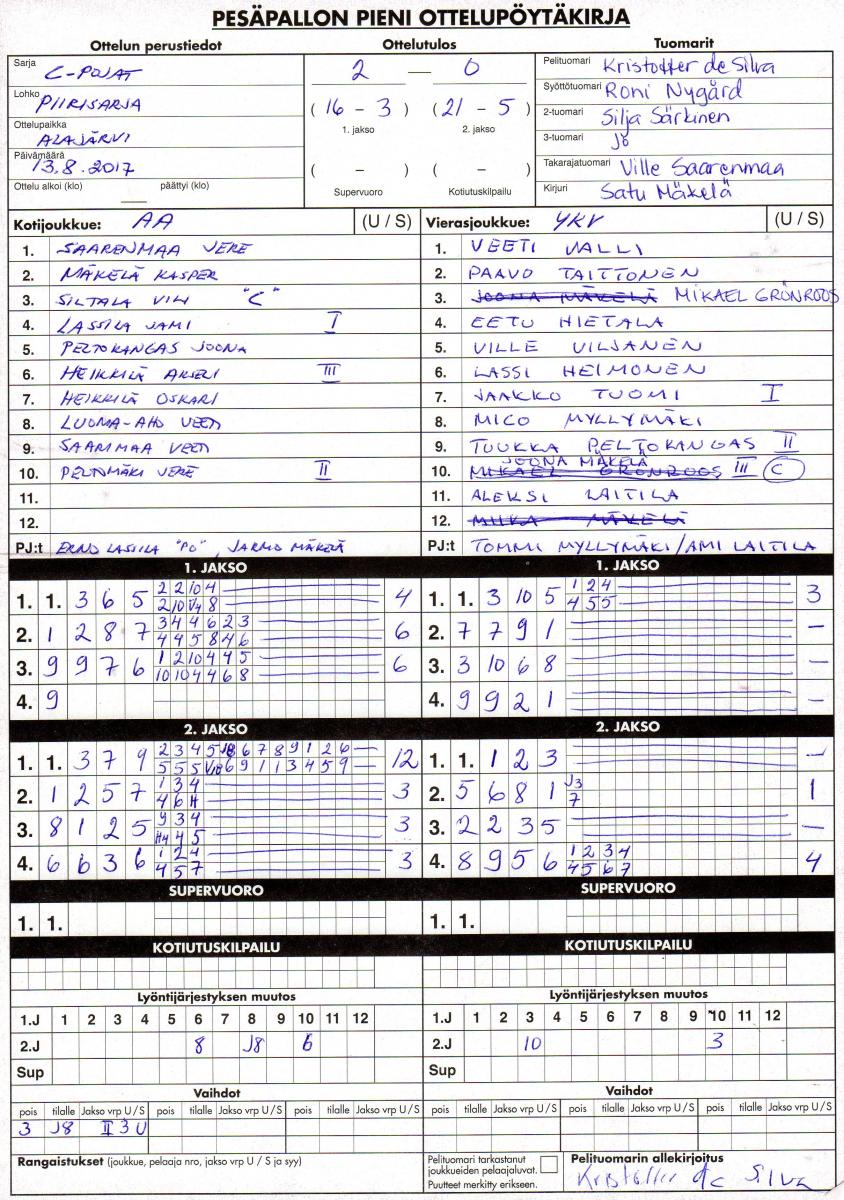 PESÄPALLON PIENI OTTELUPÖYTÄKIRJA
Ottelun perustiedot
Ottelutulos
Tuomarit
Sarja C-POJAT
2 — 0
Pelituomari Kristoffer de Silva
Lohko PIIRISARJA
(16 – 3) (21 – 5)
Syöttötuomari Roni Nygård
1. jakso 2. jakso
Ottelupaikka ALAJÄRVI
2-tuomari Silja Särkinen
3-tuomari Jö
Päivämäärä 13.8.2017
( – ) ( – )
Takarajatuomari Ville Saarenmaa
Ottelu alkoi (klo) päättyi (klo)
Supervuoro Kotiutuskilpailu
Kirjuri Satu Mäkelä
Kotijoukkue: AA (U / S)
1. SAARENMAA VERE
2. MÄKELÄ KASPER
3. SILTALA VILI "C"
4. LASSILA JAMI I
5. PELTOKANGAS JOONA
6. HEIKKILÄ AKSELI III
7. HEIKKILÄ OSKARI
8. LUOMA-AHO VEETI
9. SAARIMAA VEETI
10. PELTOMÄKI VERE II
11.
12.
PJ:t ERNO LASSILA "PJ", JARMO MÄKELÄ
Vierasjoukkue: YKV (U / S)
1. VEETI VALLI
2. PAAVO TAITTONEN
3. JOONA MÄKELÄ MIKAEL GRÖNROOS
4. EETU HIETALA
5. VILLE VILJANEN
6. LASSI HEIMONEN
7. JAAKKO TUOMI I
8. MICO MYLLYMÄKI
9. TUUKKA PELTOKANGAS II
JOONA MÄKELÄ
10. MIKAEL GRÖNROOS III C
11. ALEKSI LAITILA
12. MIIKA MÄKELÄ
PJ:t TOMMI MYLLYMÄKI/AMI LAITILA
1. JAKSO
1. 1. 3 6 5 2 2 10 4 4
2 10 V4 8
2. 1 2 8 7 3 4 4 6 2 3 6
4 4 5 8 4 6
3. 9 9 7 6 1 2 10 4 4 5 6
10 10 4 4 6 8
4. 9
1. JAKSO
1. 1. 3 10 5 1 2 4 3
4 5 5
2. 7 7 9 1 —
3. 3 10 6 8 —
4. 9 9 2 1 —
2. JAKSO
1. 1. 3 7 9 2 3 4 5 J8 6 7 8 9 1 2 6 12
5 5 5 V10 6 9 1 1 3 4 5 9
2. 1 2 5 7 1 3 4 3
4 6 H
3. 8 1 2 5 9 3 4 3
H4 4 5
4. 6 6 3 6 1 2 4 3
4 5 7
2. JAKSO
1. 1. 1 2 3 —
2. 5 6 8 1 J3 1
7
3. 2 2 3 5 —
4. 8 9 5 6 1 2 3 4 4
4 5 6 7
SUPERVUORO
1. 1.
SUPERVUORO
1. 1.
KOTIUTUSKILPAILU
KOTIUTUSKILPAILU
Lyöntijärjestyksen muutos
1.J 1 2 3 4 5 6 7 8 9 10 11 12
2.J 8 J8 6
Sup
Lyöntijärjestyksen muutos
1.J 1 2 3 4 5 6 7 8 9 10 11 12
2.J 10 3
Sup
Vaihdot
pois tilalle Jakso vrp U / S pois tilalle Jakso vrp U / S pois tilalle Jakso vrp U / S
3 J8 II 3 U
Vaihdot
pois tilalle Jakso vrp U / S pois tilalle Jakso vrp U / S pois tilalle Jakso vrp U / S
Rangaistukset (joukkue, pelaaja nro, jakso vrp U / S ja syy)
Pelituomari tarkastanut
joukkueiden pelaajaluvat.
Puutteet merkitty erikseen.
Pelituomarin allekirjoitus
Kristoffer de Silva